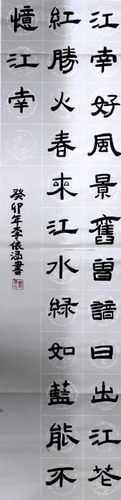 江南好風景舊曽諳日出江花
紅勝火春來江水緑如藍能不
憶江南
癸卯年李依涵書